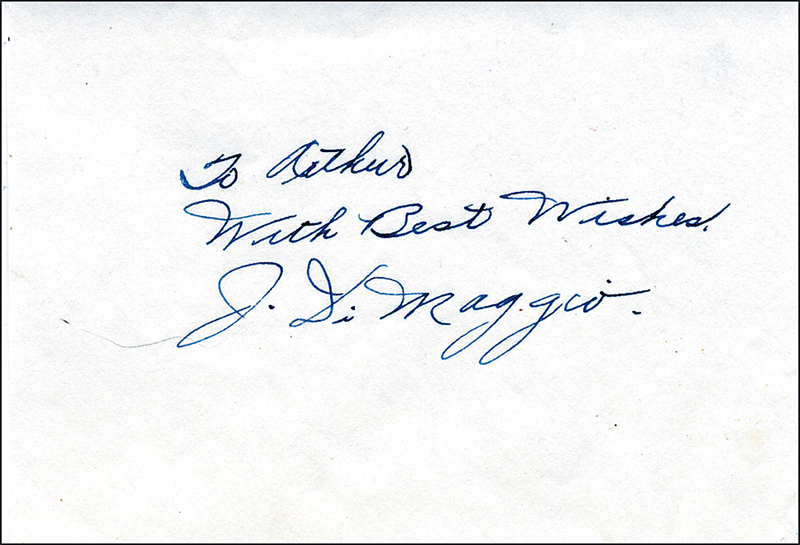 To Arthur
With Best Wishes.
J. Di Maggio.